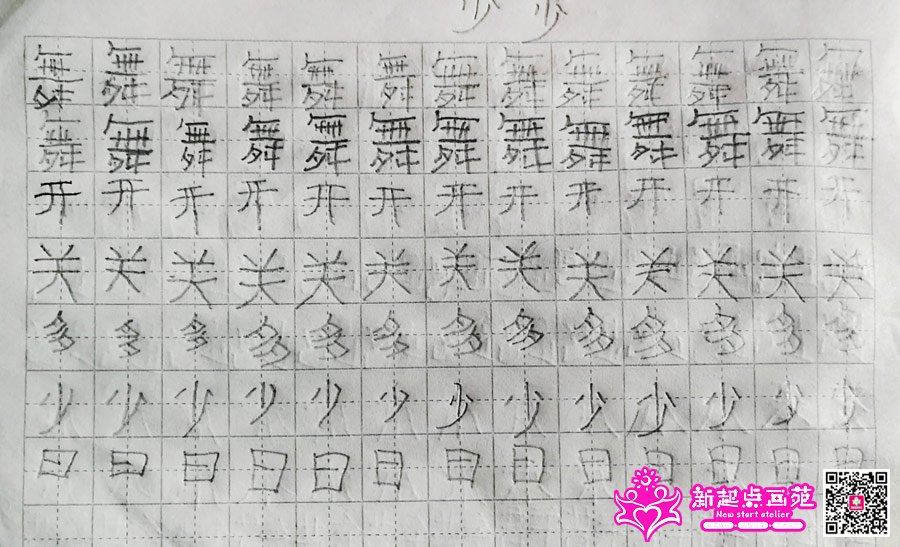 少 少
舞 舞 舞 舞 舞 舞 舞 舞 舞 舞 舞 舞 舞
舞 舞 舞 舞 舞 舞 舞 舞 舞 舞 舞 舞 舞
开 开 开 开 开 开 开 开 开 开 开 开 开
关 关 关 关 关 关 关 关 关 关 关 关 关
多 多 多 多 多 多 多 多 多 多 多 多 多
少 少 少 少 少 少 少 少 少 少 少 少 少
日 日 日 日 日 日 日 日 日 日 日 日 日
新起点画苑
New start atelier